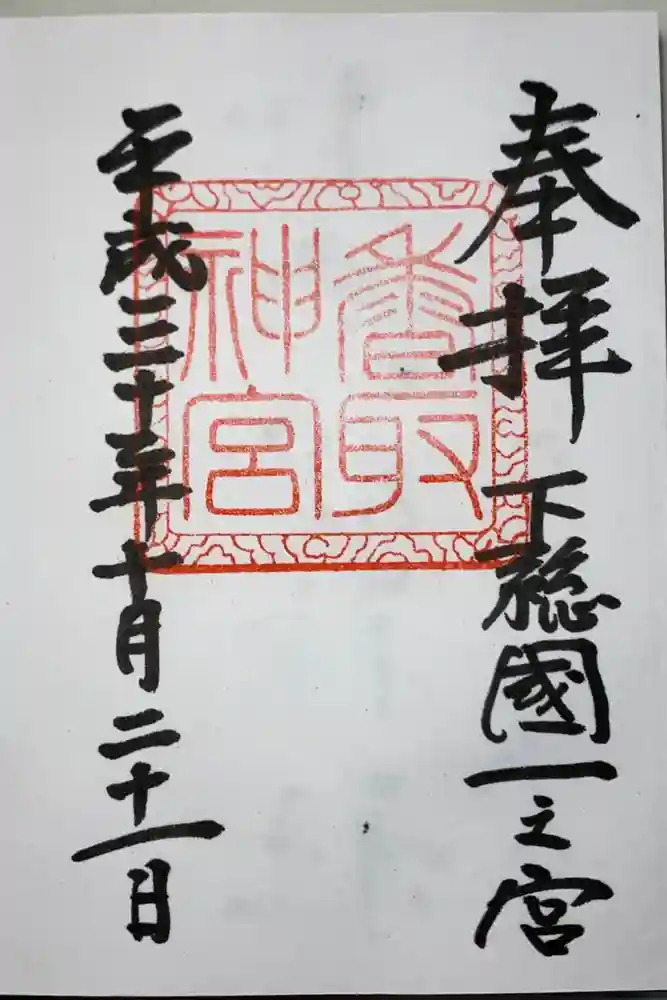 奉拝
下総國一之宮
香取
神宮
平成三十年十月二十一日